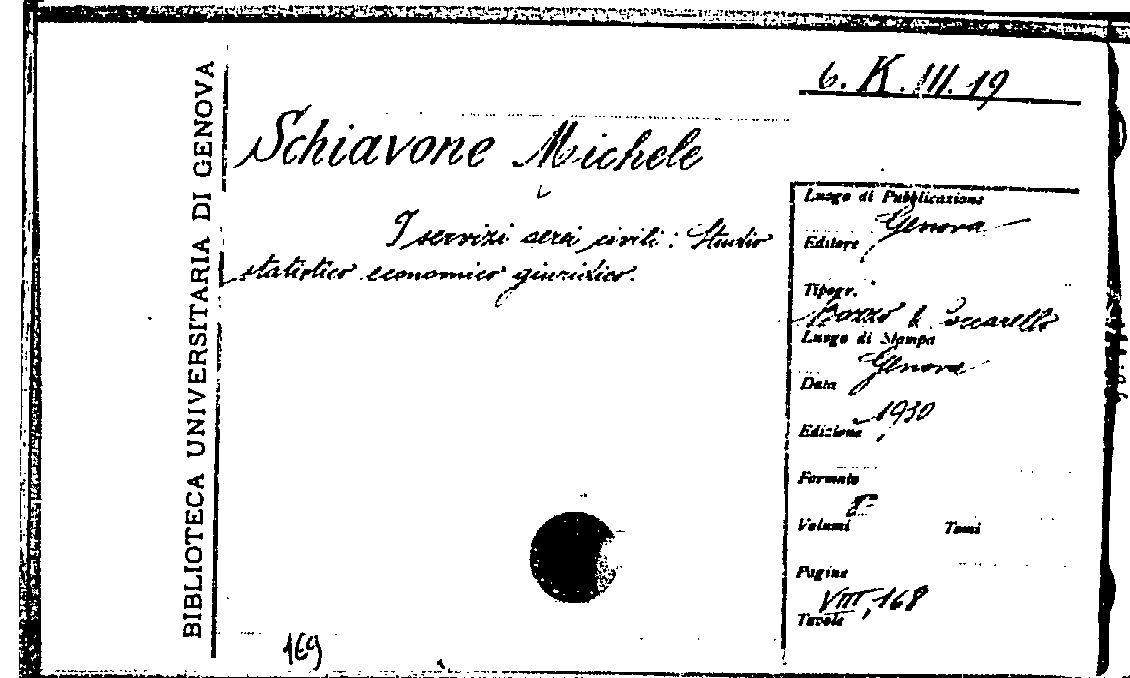 6. K. III. 19
BIBLIOTECA UNIVERSITARIA DI GENOVA
Schiavone Michele
I servizi aerei civili: Studio
statistico economico giuridico.
Luogo di Pubblicazione
Genova
Editore
Tipogr.
Bozzo &
Luogo di Stampa
Genova
Data
1930
Edizione
Formato
8°
Volumi Tomi
Pagine
VIII, 168
Tavole
169